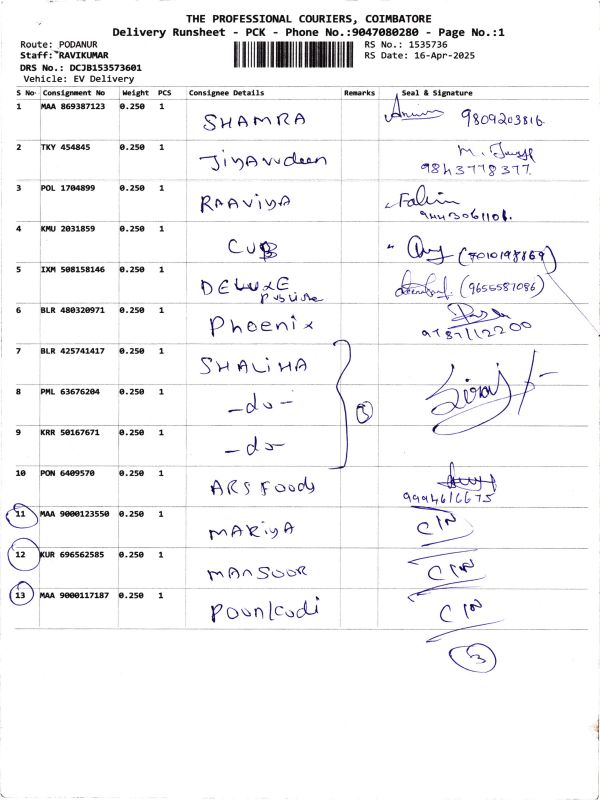 THE PROFESSIONAL COURIERS, COIMBATORE
Delivery Runsheet - PCK - Phone No.:9047080280 - Page No.:1
Route: PODANUR
RS No.: 1535736
Staff:*RAVIKUMAR
RS Date: 16-Apr-2025
DRS No.: DCJB153573601
Vehicle: EV Delivery
S No. Consignment No Weight PCS Consignee Details Remarks Seal & Signature
1 MAA 869387123 0.250 1 SHAMRA 9809203816
2 TKY 454845 0.250 1 Jiyavudeen M.
9843778377
3 POL 1704899 0.250 1 RAAVIYA Fahim
9443061101
4 KMU 2031859 0.250 1 CUB (7010198869)
5 IXM 508158146 0.250 1 DELUXE (9655587086)
6 BLR 480320971 0.250 1 Phoenix
9787112200
7 BLR 425741417 0.250 1 SHALIHA
8 PML 63676204 0.250 1 -do- 3 Siraj
9 KRR 50167671 0.250 1 -do-
10 PON 6409570 0.250 1 ARS Foods
9994616675
11 MAA 9000123550 0.250 1 MARIYA CIN
12 KUR 696562585 0.250 1 MANSOOR CIN
13 MAA 9000117187 0.250 1 Poonkodi CIN
3